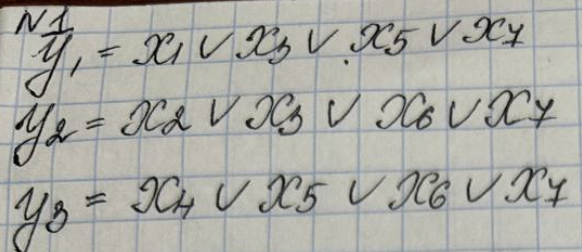 N1
y₁ = x₁ ∨ x₃ ∨ x₅ ∨ x₇
y₂ = x₂ ∨ x₃ ∨ x₆ ∨ x₇
y₃ = x₄ ∨ x₅ ∨ x₆ ∨ x₇